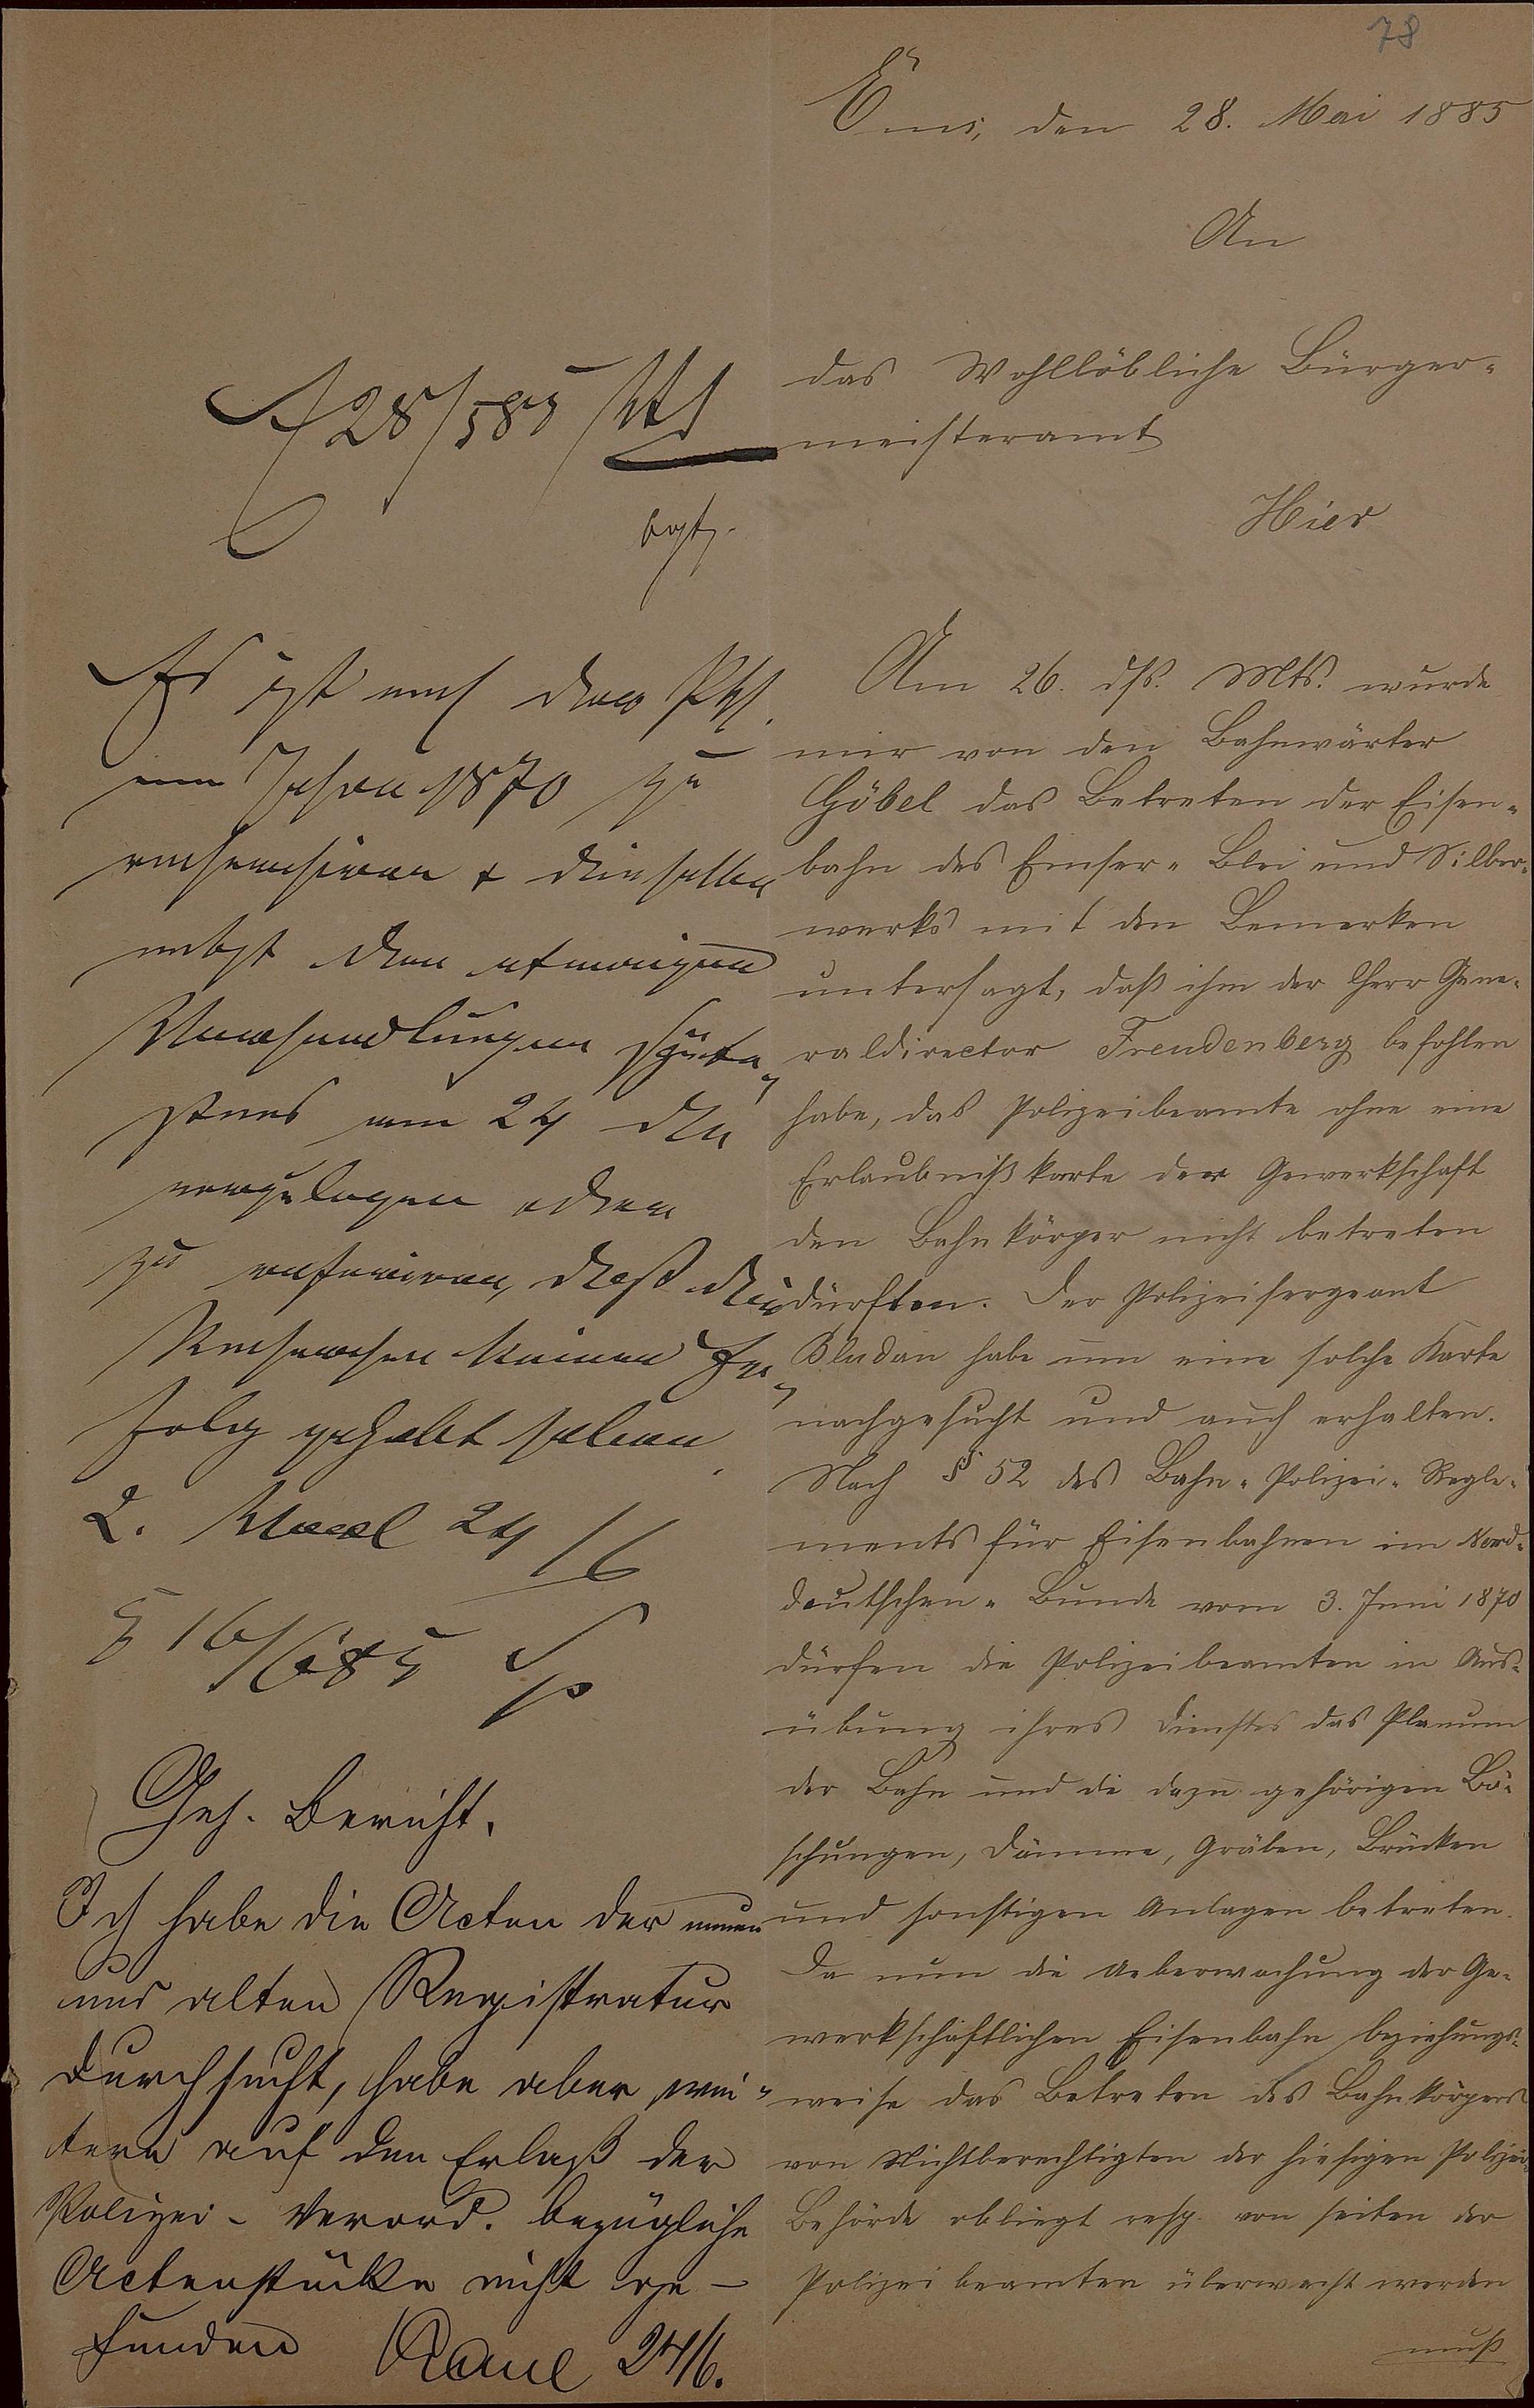 78
Ems, den 28. Mai 1885
An
das Wohllöbliche Bürger-
meisteramt
Hier
Am 26. dſs. Mts. wurde
mir von den Bahnwärter
Göbel das Betreten der Eisen-
bahn des Emser- Blei und Silber-
werks mit den Bemerken
untersagt, daß ihm der Herr Gene-
raldirector Freudenberg befohlen
habe, das Polizeibeamte ohne eine
Erlaubnißkarte der Gewerkschaft
den Bahnkörper nicht betreten
dürften. Der Polizeisergeant
Bludau habe um eine solche Karte
nachgesucht und auch erhalten.
Nach § 52 des Bahn-Polizei-Regle-
ments für Eisenbahnen im Nord-
deutschen-Bunde vom 3. Juni 1870
dürfen die Polizeibeamten in Aus-
übung ihres Dienstes das Planum
der Bahn und die dazu gehörigen Bö-
schungen, Dämme, Gräben, Brücken
und sonstigen Anlagen betreten.
Da nun die Ueberwachung der Ge-
werkschaftlichen Eisenbahn beziehungs-
weise das Betreten des Bahnkörpers
von Nichtberechtigten der hiesigen Polizei-
Behörde obliegt resp. von seiten der
Polizeibeamten überwacht werden
muß
28/5 85
Es ist nach den
im Jahre 1870 zu
recherchiren & dieselben
nebst den etwaigen
Verhandlungen späte-
stens am 24 d.
vorzulegen oder
zu referiren, daß die
Recherchen keinen Er-
folg gehabt haben.
2. Raul 24/6
E 16/6 85
Geh. Bericht.
Ich habe die Acten der neuen
und alten Registratur
durchsucht, habe aber wei-
tere auf den Erlaß der
Polizei-Verord. bezügliche
Actenstücke nicht ge-
funden Raul 24/6.